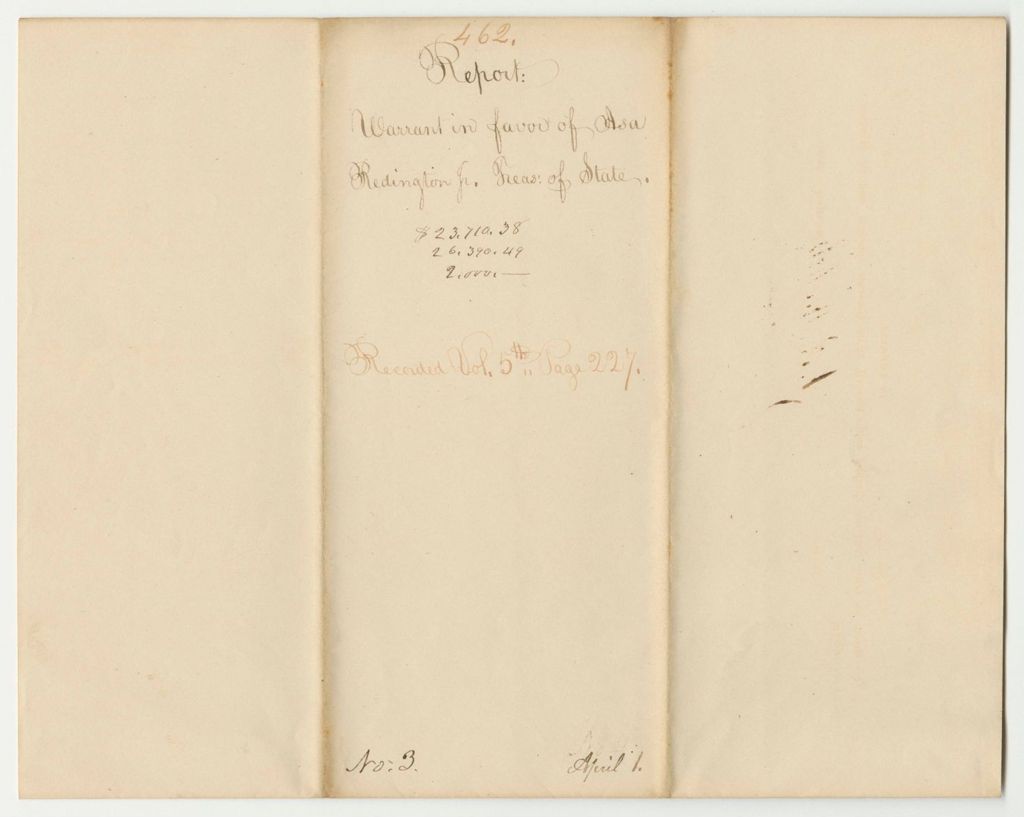 462.
Report:
Warrant in favor of Asa
Redington Jr. Treas: of State.
$23,710.38
26,390.49
2,000.—
Recorded Vol. 5th Page 227.
No: 3.
April 1.